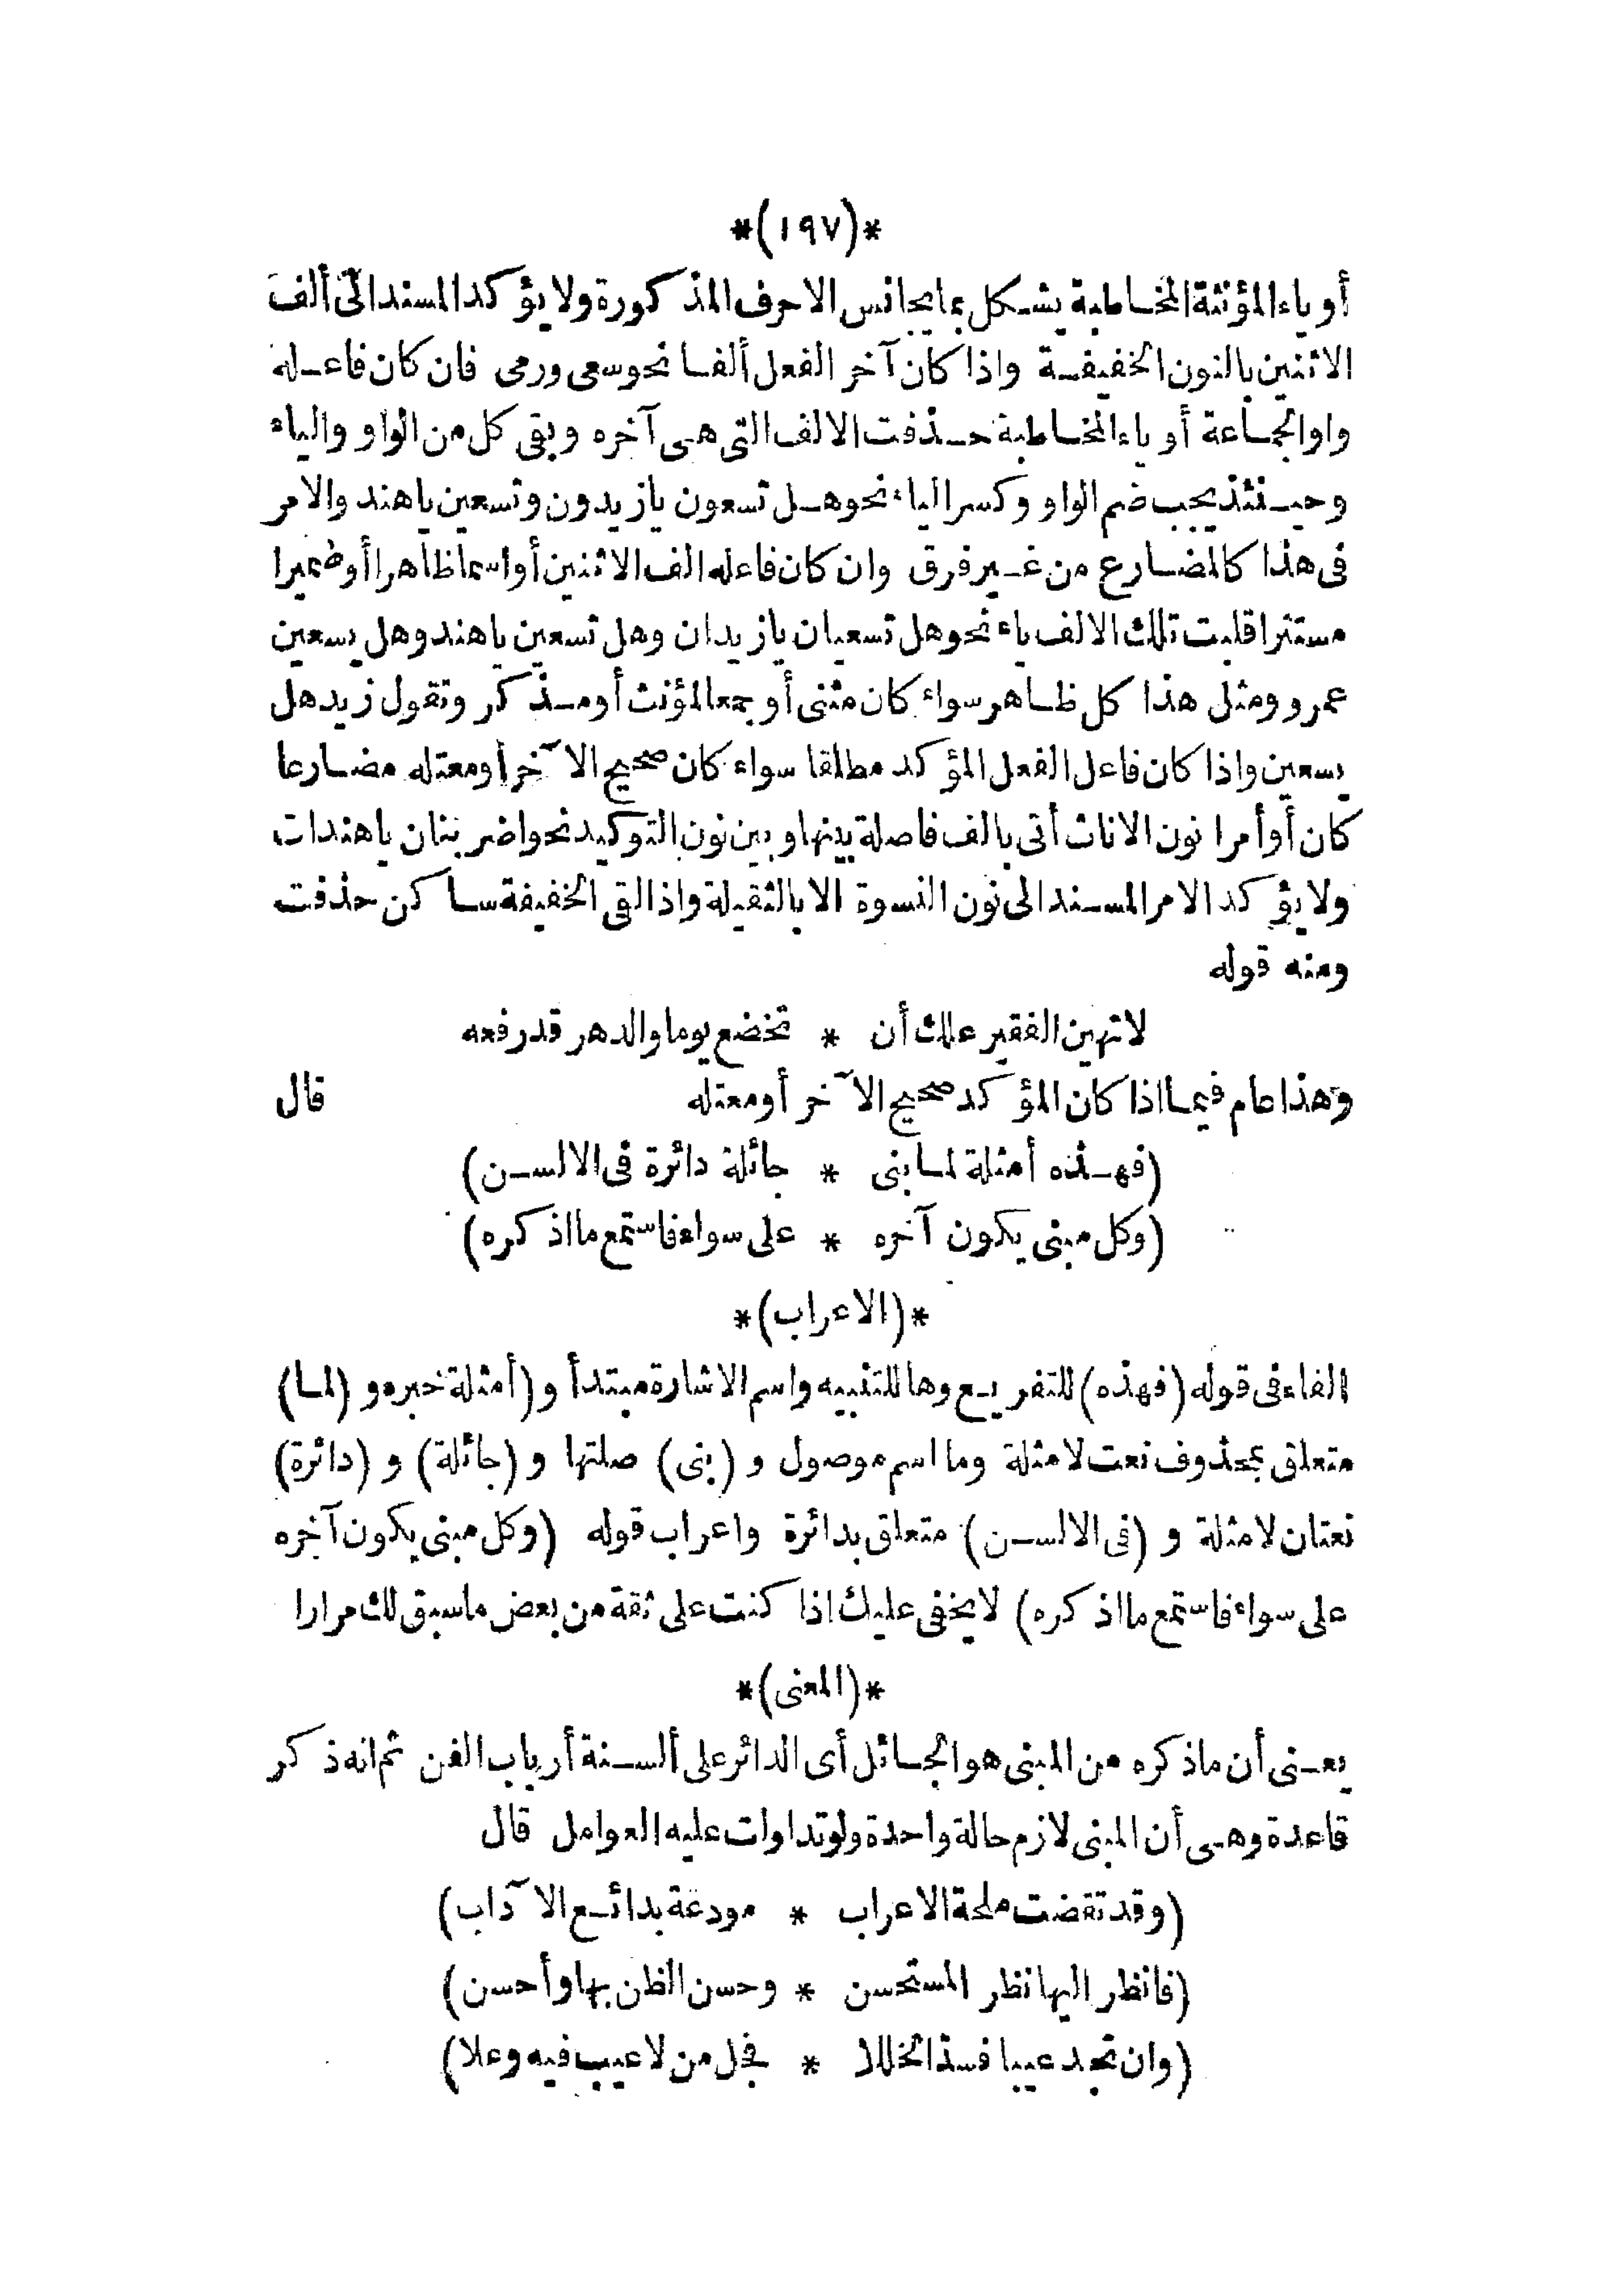 *(١٩٧)*
أو ياء المؤنثة المخاطبة يشكل بما يجانس الاحرف المذكورة ولا يؤكد المسند الى ألف
الاثنين بالنون الخفيفة واذا كان آخر الفعل ألفا نحو سعى ورمى فان كان فاعله
واو الجماعة أو ياء المخاطبة حذفت الالف التى هى آخره وبقى كل من الواو والياء
وحينئذ يجب ضم الواو وكسر الياء نحو هل تسعون يازيدون وتسعين ياهند والامر
فى هذا كالمضارع من غير فرق وان كان فاعله الف الاثنين أو اسما ظاهرا أو ضميرا
مستترا قلبت تلك الالف ياء نحو هل تسعيان يازيدان وهل تسعين ياهند وهل يسعين
عمرو ومثل هذا كل ظاهر سواء كان مثنى أو جمعا لمؤنث أو مذكر وتقول زيد هل
يسعين واذا كان فاعل الفعل المؤكد مطلقا سواء كان صحيح الآخر أو معتله مضارعا
كان أو أمرا نون الاناث أتى بالف فاصلة بينها وبين نون التوكيد نحو اضربنان ياهندات
ولا يؤكد الامر المسند الى نون النسوة الا بالثقيلة واذا لقى الخفيفة ساكن حذفت
ومنه قوله
لاتهين الفقير علك أن * تخضع يوما والدهر قد رفعه
وهذا عام فيما اذا كان المؤكد صحيح الآخر أو معتله قال
(فهذه أمثلة لما بنى * جائلة دائرة فى الالسن)
(وكل مبنى يكون آخره * على سواء فاستمع ما اذكره)
*(الاعراب)*
الفاء فى قوله (فهذه) للتفريع وها للتنبيه واسم الاشارة مبتدأ و (أمثلة خبره و (لما)
متعلق بمحذوف نعت لامثلة وما اسم موصول و (بنى) صلتها و (جائلة) و (دائرة)
نعتان لامثلة و (فى الالسن) متعلق بدائرة واعراب قوله (وكل مبنى يكون آخره
على سواء فاستمع ما اذكره) لايخفى عليك اذا كنت على ثقة من بعض ماسبق لك مرارا
*(المعنى)*
يعنى أن ماذكره من المبنى هو الجائل أى الدائر على ألسنة أرباب الفن ثم انه ذكر
قاعدة وهى أن المبنى لازم حالة واحدة ولو تداوات عليه العوامل قال
(وقد تقضت ملحة الاعراب * مودعة بدائع الآداب)
(فانظر اليها نظر المستحسن * وحسن الظن بها وأحسن)
(وان تجد عيبا فسد الخللا * فجل من لاعيب فيه وعلا)